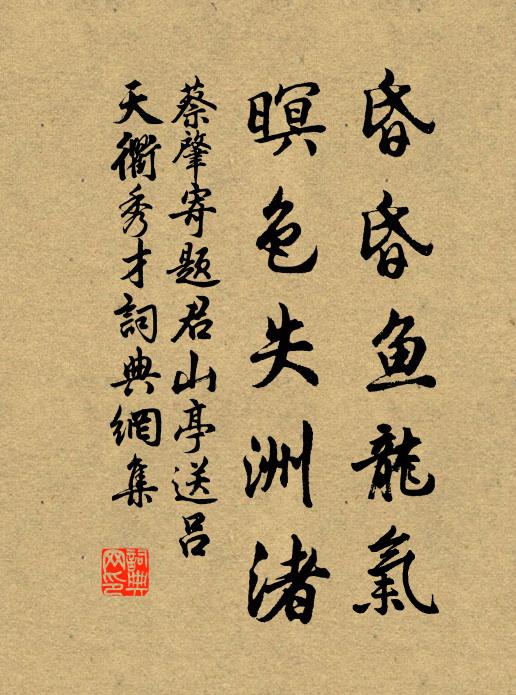 昏昏鱼龍氣
暝色失洲渚
蔡肇寄題君山亭送呂
天衢秀才詞典網集
詞典
网印